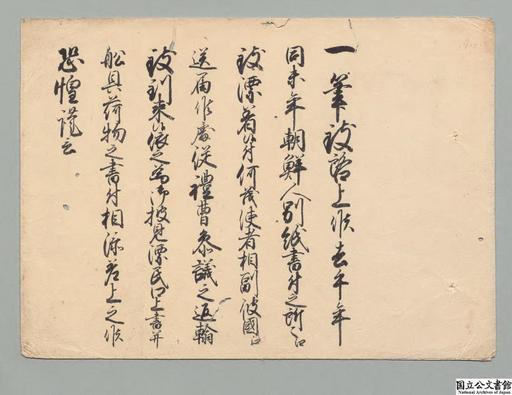 一筆致啓上候去午年
同未年朝鮮人別紙書付之所々江
致漂着候付何茂使者相副彼國江
送届候處従禮曹参議之返翰
致到来候依之為御披見漂民口上書并
船具荷物之書付相添差上之候
恐惶謹言
国立公文書館
National Archives of Japan